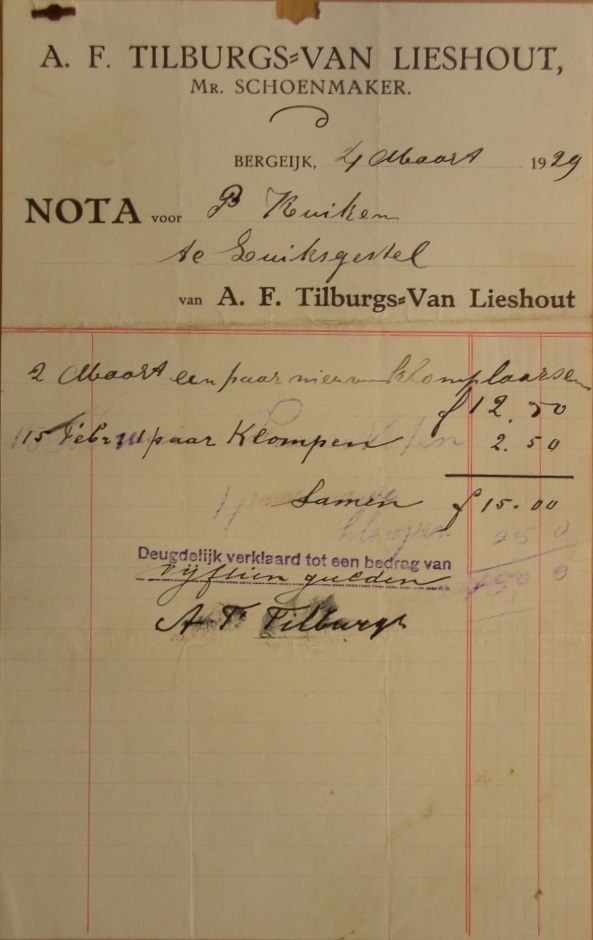 A. F. TILBURGS=VAN LIESHOUT,
MR. SCHOENMAKER.
BERGEIJK, 4 Maart 1929
NOTA voor P Kuiken
te Luiksgestel
van A. F. Tilburgs=Van Lieshout
2 Maart een paar nieuwe
f 12.50
15 Febr 1 paar Klompen 2.50
Samen f 15.00
Deugdelijk verklaard tot een bedrag van
vijftien gulden
A F Tilburgs